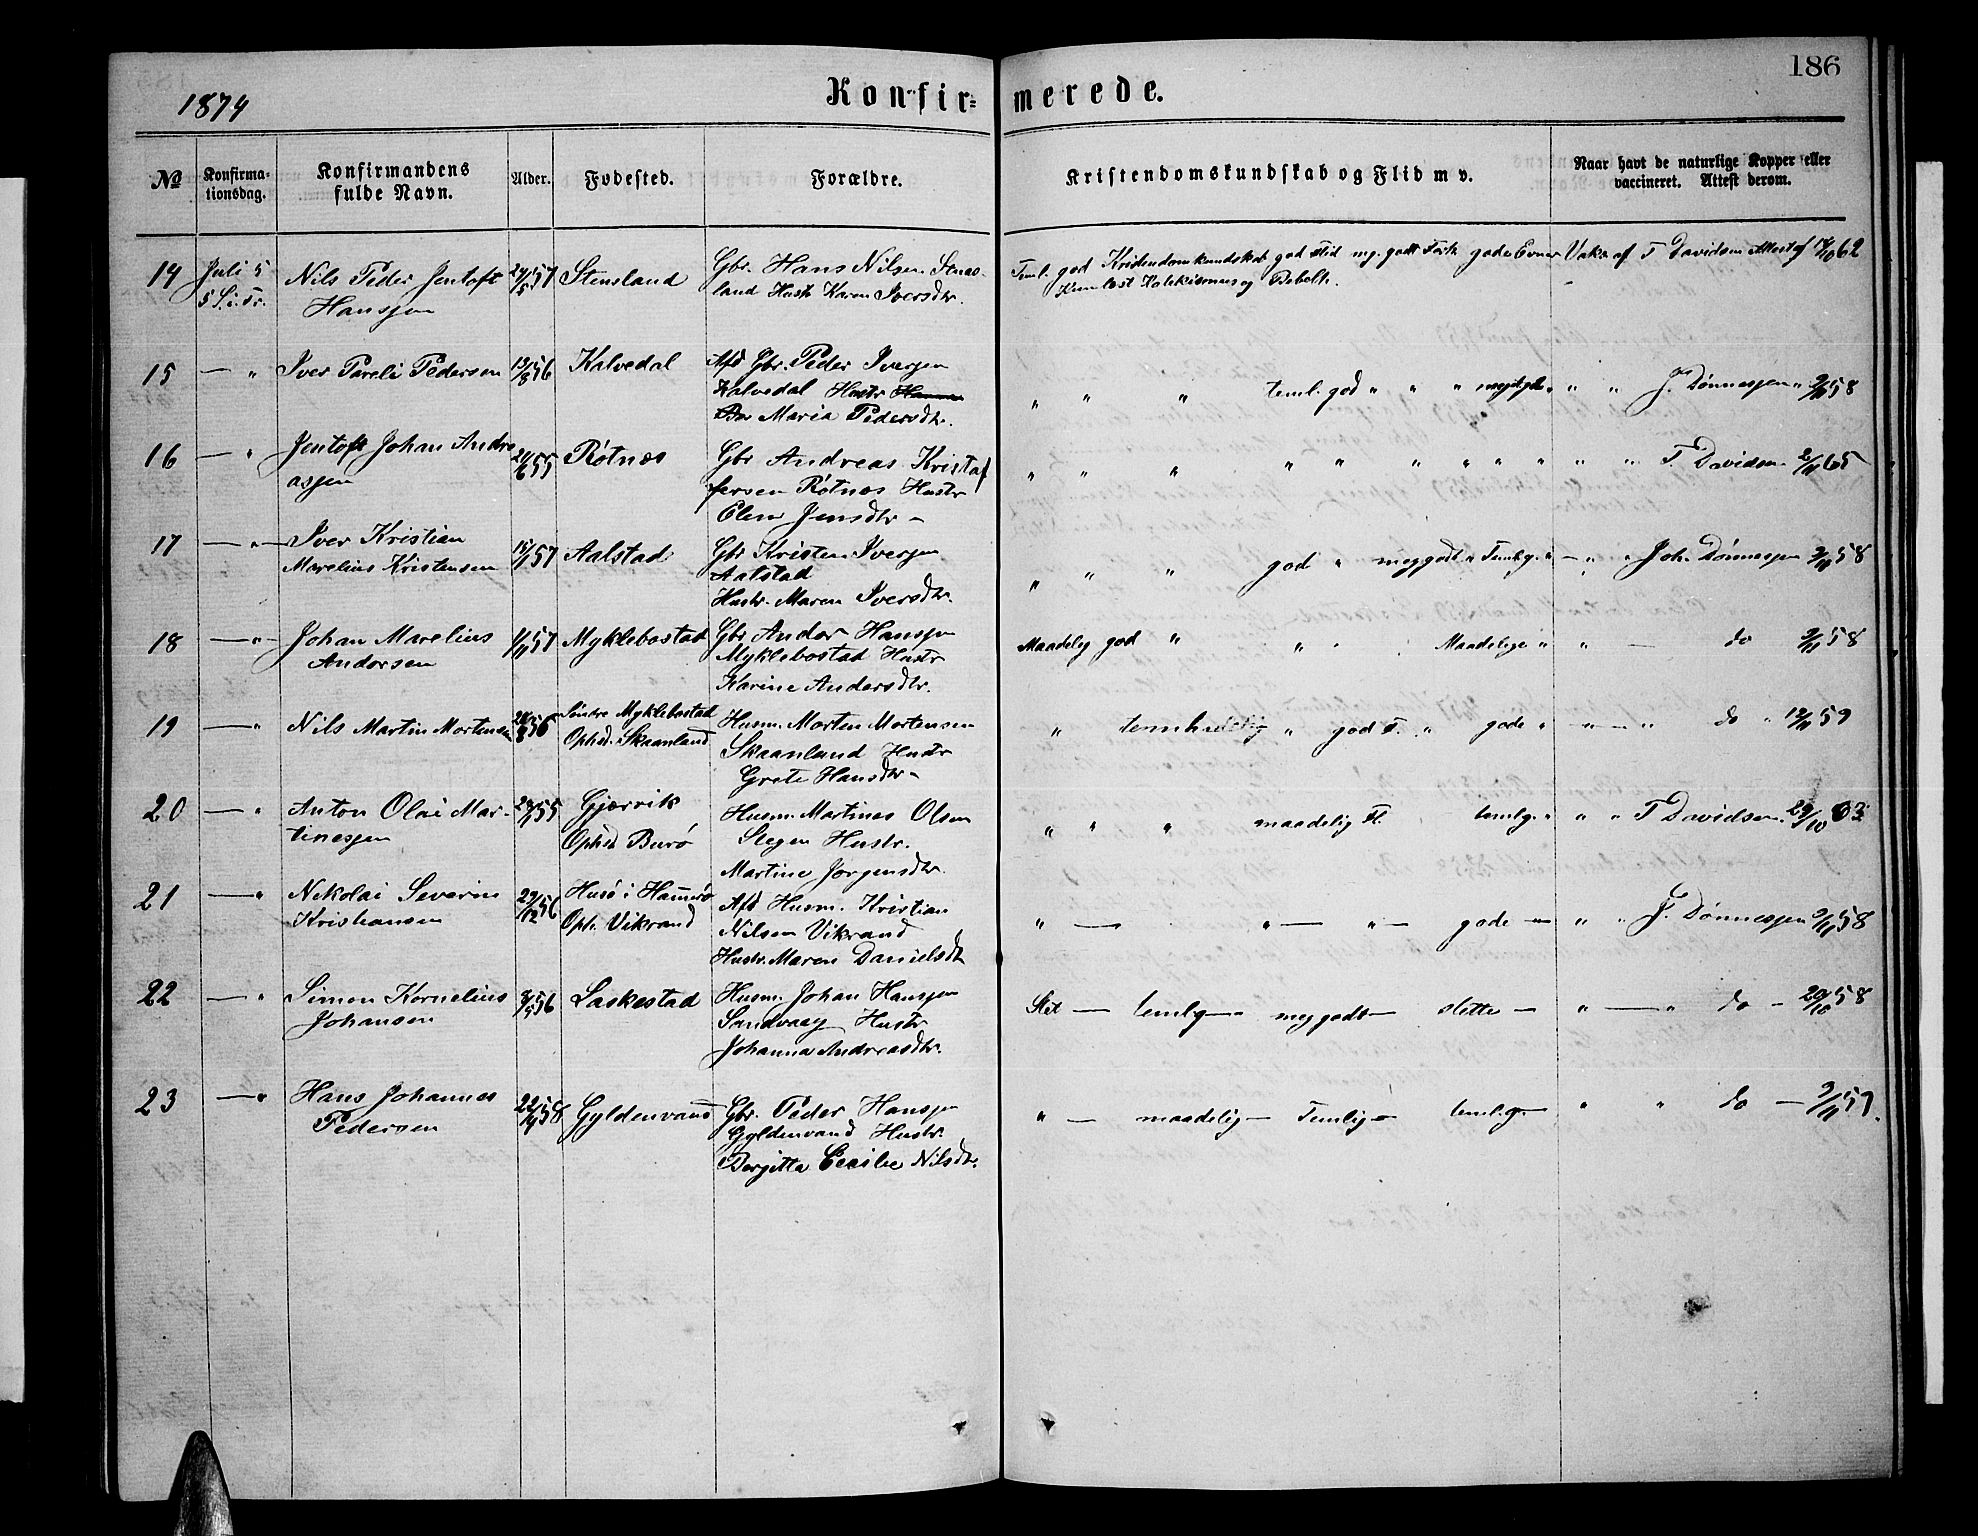 186
1874
Konfir=
merede.
No
Konfirma-
tionsdag.
Konfirmandens
fulde Navn.
Alder.
Fødested.
Forældre.
Kristendomskundskab og Flid m v.
Naar havt de naturlige Kopper eller
vaccineret. Attest derom.
14 Juli 5
5 S. i. Tr.
Nils Peder Jentoft
Hansen
29/5 57
Stensland
Gbr. Hans Nilsen Stens-
land Hustr Karen Iversdtr.
Teml. god Kristendomkundskab god Flid mg. godt Forh gode Evner
Katekismus og Bibelh.
Vaks af T Davidsen Attest af 17/10 62
15 — „
Iver Pareli Pedersen
13/8 56
Kalvedal
Afd Gbr. Peder Iversen
Kalvedal Hustr
Maria Pedersdtr.
„ „ „ teml. god „ „ „
„ „ J. Dønnesen „ 9/11 58
16 — „
Jentoft Johan Andre
asen
21/6 55
Røtnes
Gbr Andreas Kristof
fersen Røtnes Hustr
Elen Jensdtr —
„ „ „ „ „ „ „ „ „
„ „ T. Davidsen 2/11 65
17 — „ —
Iver Kristian
Marelius Kristensen
15/1 57
Aalstad
Gbr Kristen Iversen
Aalstad
Hustr. Maren Iversdtr.
„ „ „ god „ meg godt „ Temlg. „
— „ „ Joh. Dønnesen 9/11 58
18 — „ —
Johan Marelius
Andorsen
1/11 57
Myklebostad
Gbr Andor Hansen
Myklebostad Hustr
Karine Andersdtr.
Maadelig god „ „ „ Maadelige „
„ — do 9/11 58
19 — „
Nils Martin Mortensen
Søndre Myklebostad
Ophd. Skaanland
Husm. Morten Mortensen
Skaanland Hustr
Grete Hansdtr —
„ temmelig „ god F. „ gode „
— „ — „ do „ 12/11 59
20 — „
Anton Olai Mar-
tinesen
Gjærvik
Ophd Burø
Husm. Martines Olsen
Stegen Hustr.
Martine Jørgensdtr.
„ „ „ maadelig Fl. temlg. „
„ „ T Davidsen. 29/10 63
21 — „
Nekolai Severin
Kristiansen
29/12 56
Husø i Hammerø
Oph. Vikrand
Afd Husm. Kristian
Nilsen Vikrand
Hustr. Maren Danielsdtr
„ — „ — „ — gode — „
„ „ J. Dønnesen 9/11 58
22 — „
Simon Kornelius
Johansen
Laskestad
Husm. Johan Hansen
Sandvaag Hustr
Johanna Andreasdtr.
Slet — temlg — meg godt — slette —
„ — „ do — 20/10 58
23 — „
Hans Johannes
Pedersen
Gyldenvand
Gbr. Peder Hansen
Gyldenvand Hustr.
Bergitta Cecilie Nilsdtr.
„ — maadelig — Temlig — temlg. —
„ „ do —